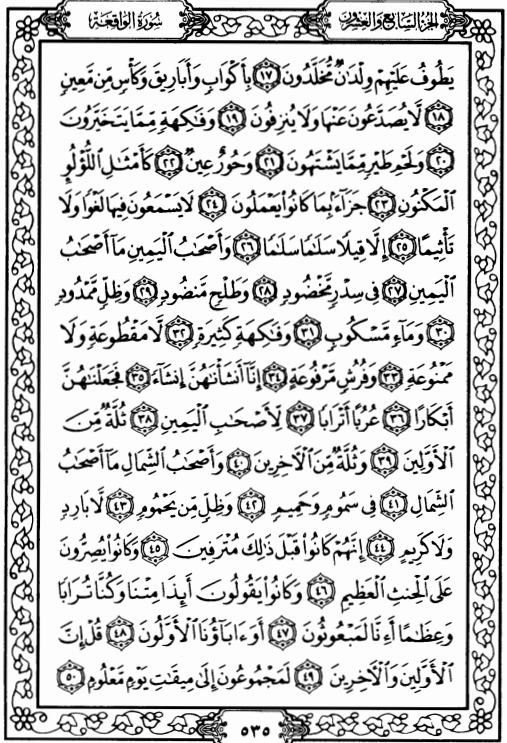 سورة الواقعة الجزء السابع والعشرون
يَطُوفُ عَلَيْهِمْ وِلْدَٰنٌ مُّخَلَّدُونَ ١٧ بِأَكْوَابٍ وَأَبَارِيقَ وَكَأْسٍ مِّن مَّعِينٍ
١٨ لَّا يُصَدَّعُونَ عَنْهَا وَلَا يُنزِفُونَ ١٩ وَفَٰكِهَةٍ مِّمَّا يَتَخَيَّرُونَ
٢٠ وَلَحْمِ طَيْرٍ مِّمَّا يَشْتَهُونَ ٢١ وَحُورٌ عِينٌ ٢٢ كَأَمْثَٰلِ ٱللُّؤْلُؤِ
ٱلْمَكْنُونِ ٢٣ جَزَآءًۢ بِمَا كَانُوا۟ يَعْمَلُونَ ٢٤ لَا يَسْمَعُونَ فِيهَا لَغْوًا وَلَا
تَأْثِيمًا ٢٥ إِلَّا قِيلًا سَلَٰمًا سَلَٰمًا ٢٦ وَأَصْحَٰبُ ٱلْيَمِينِ مَآ أَصْحَٰبُ
ٱلْيَمِينِ ٢٧ فِى سِدْرٍ مَّخْضُودٍ ٢٨ وَطَلْحٍ مَّنضُودٍ ٢٩ وَظِلٍّ مَّمْدُودٍ
٣٠ وَمَآءٍ مَّسْكُوبٍ ٣١ وَفَٰكِهَةٍ كَثِيرَةٍ ٣٢ لَّا مَقْطُوعَةٍ وَلَا
مَمْنُوعَةٍ ٣٣ وَفُرُشٍ مَّرْفُوعَةٍ ٣٤ إِنَّآ أَنشَأْنَٰهُنَّ إِنشَآءً ٣٥ فَجَعَلْنَٰهُنَّ
أَبْكَارًا ٣٦ عُرُبًا أَتْرَابًا ٣٧ لِّأَصْحَٰبِ ٱلْيَمِينِ ٣٨ ثُلَّةٌ مِّنَ
ٱلْأَوَّلِينَ ٣٩ وَثُلَّةٌ مِّنَ ٱلْءَاخِرِينَ ٤٠ وَأَصْحَٰبُ ٱلشِّمَالِ مَآ أَصْحَٰبُ
ٱلشِّمَالِ ٤١ فِى سَمُومٍ وَحَمِيمٍ ٤٢ وَظِلٍّ مِّن يَحْمُومٍ ٤٣ لَّا بَارِدٍ
وَلَا كَرِيمٍ ٤٤ إِنَّهُمْ كَانُوا۟ قَبْلَ ذَٰلِكَ مُتْرَفِينَ ٤٥ وَكَانُوا۟ يُصِرُّونَ
عَلَى ٱلْحِنثِ ٱلْعَظِيمِ ٤٦ وَكَانُوا۟ يَقُولُونَ أَئِذَا مِتْنَا وَكُنَّا تُرَابًا
وَعِظَٰمًا أَءِنَّا لَمَبْعُوثُونَ ٤٧ أَوَءَابَآؤُنَا ٱلْأَوَّلُونَ ٤٨ قُلْ إِنَّ
ٱلْأَوَّلِينَ وَٱلْءَاخِرِينَ ٤٩ لَمَجْمُوعُونَ إِلَىٰ مِيقَٰتِ يَوْمٍ مَّعْلُومٍ ٥٠
٥٣٥